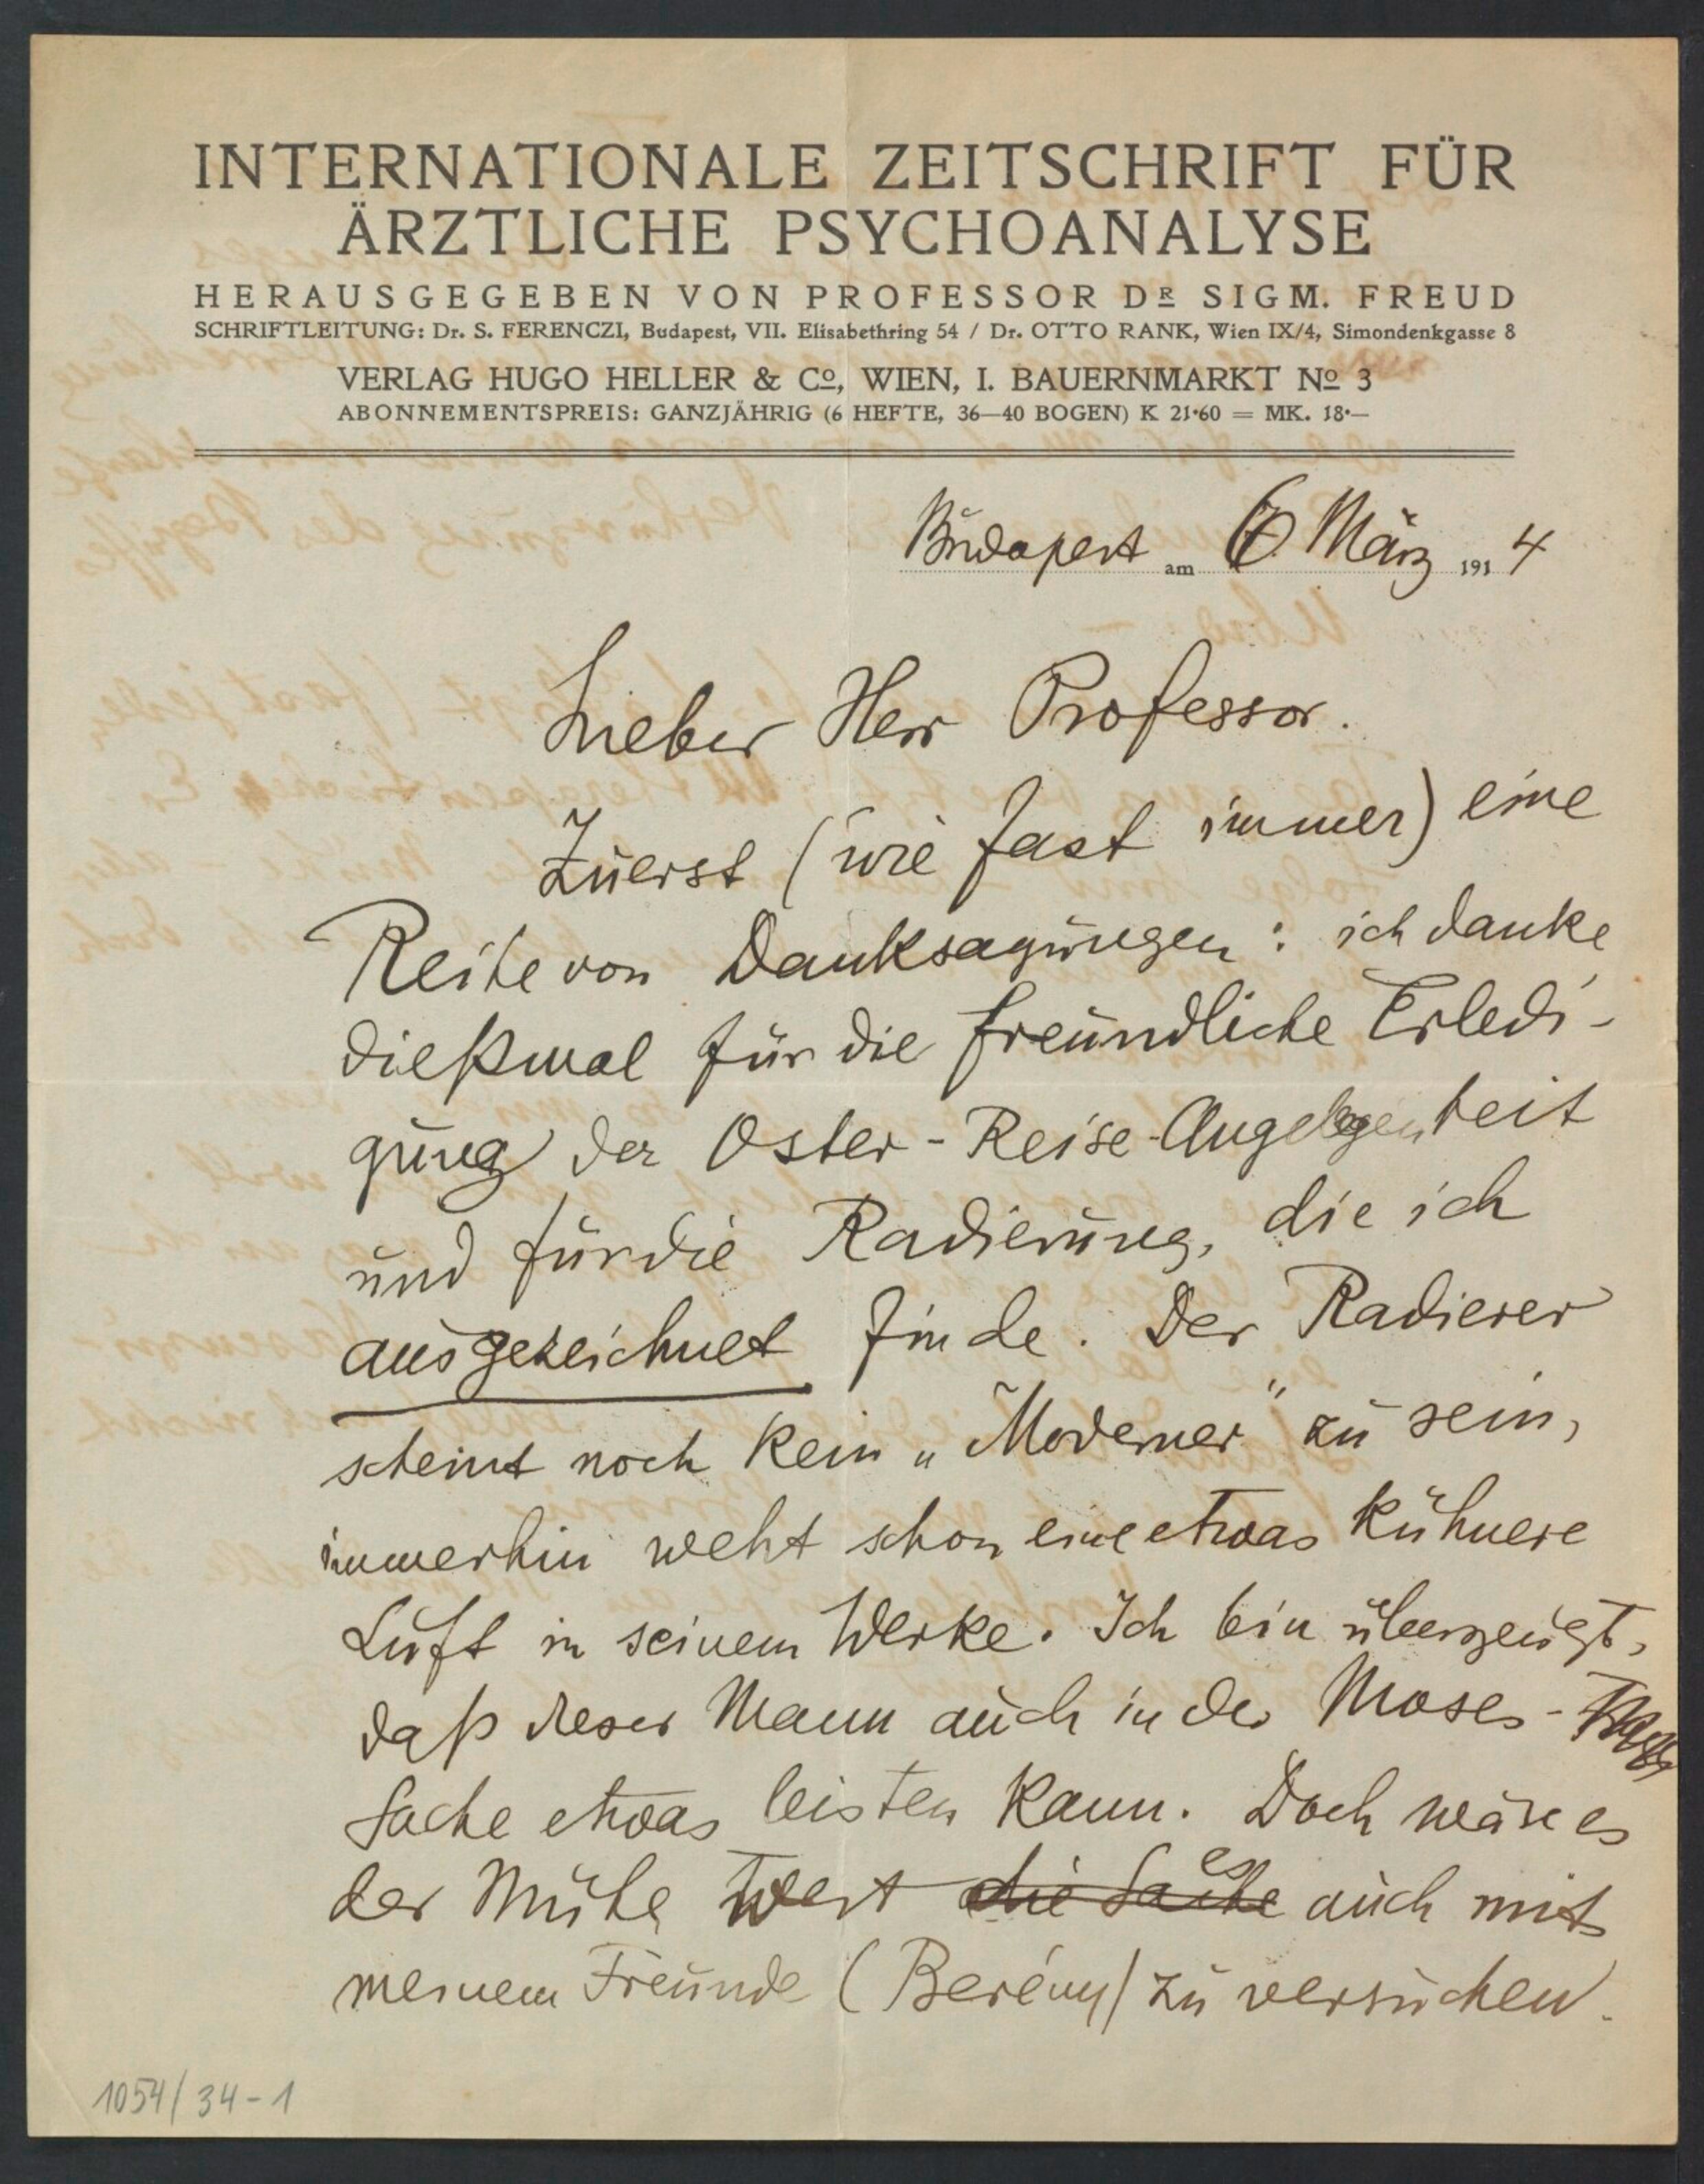 INTERNATIONALE ZEITSCHRIFT FÜR
ÄRZTLICHE PSYCHOANALYSE
HERAUSGEGEBEN VON PROFESSOR DR SIGM. FREUD
SCHRIFTLEITUNG: Dr. S. FERENCZI, Budapest, VII. Elisabethring 54 / Dr. OTTO RANK, Wien IX/4, Simondenkgasse 8
VERLAG HUGO HELLER & Co, WIEN, I. BAUERNMARKT No 3
ABONNEMENTSPREIS: GANZJÄHRIG (6 HEFTE, 36—40 BOGEN) K 21·60 = MK. 18·—
Budapest am März 1914
Lieber Herr Professor.
Zuerst (wie fast immer) eine
Reihe von Danksagungen: ich danke
dießmal für die freundliche Erledi-
gung der Oster-Reise-Angelegenheit
und für die Radierung, die ich
ausgezeichnet finde. Der Radierer
scheint noch kein „Moderner" zu sein,
immerhin weht schon eine etwas kühnere
Luft in seinem Werke. Ich bin überzeugt,
daß dieser Mann auch in der Moses-
Sache etwas leisten kann. Doch wäre es
der Mühe wert die Sache es auch mit
meinem Freunde (Berény) zu versuchen.
1054/34-1